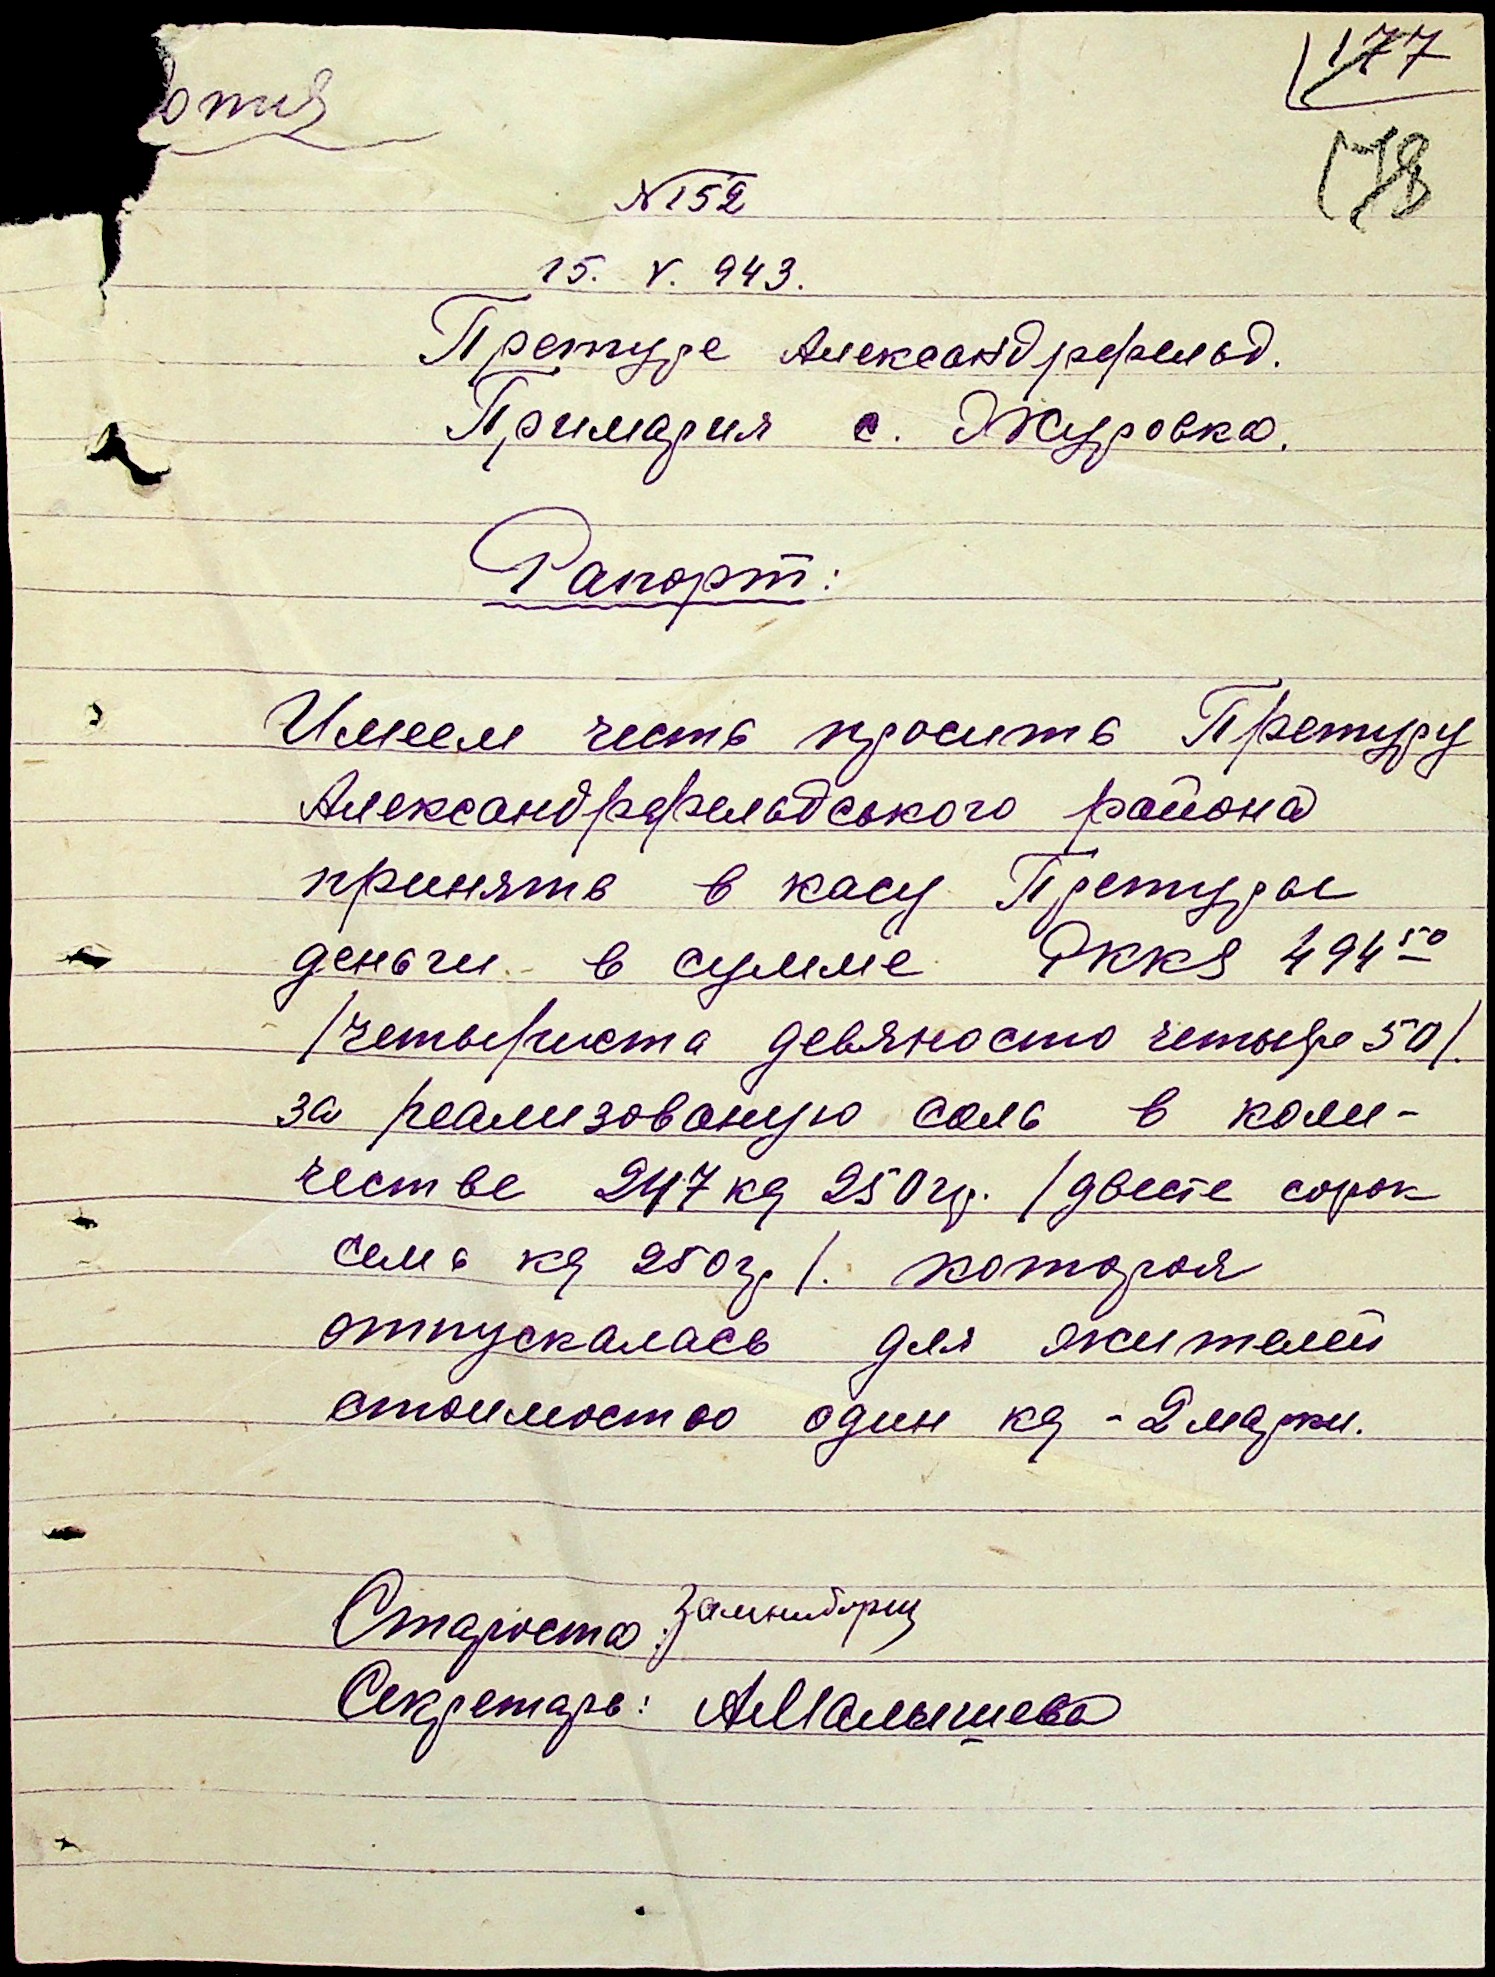 177
178
опия
N 152
15. V. 943.
Претуре Александрфельд.
Примария с. Журовка.
Рапорт:
Имеем честь просить Претуру
Александрфельдського района
принять в касу Претуры
деньги в сумме РККS 494 50
/четыриста девяносто четыре 50/.
за реализованую соль в коли-
честве 247 кg 250 гр. /двесте сорок
семь кg 250 гр/. которая
отпускалась для жителей
стоимостью один кg - 2 марки.
Староста:
Секретарь: АМалышева